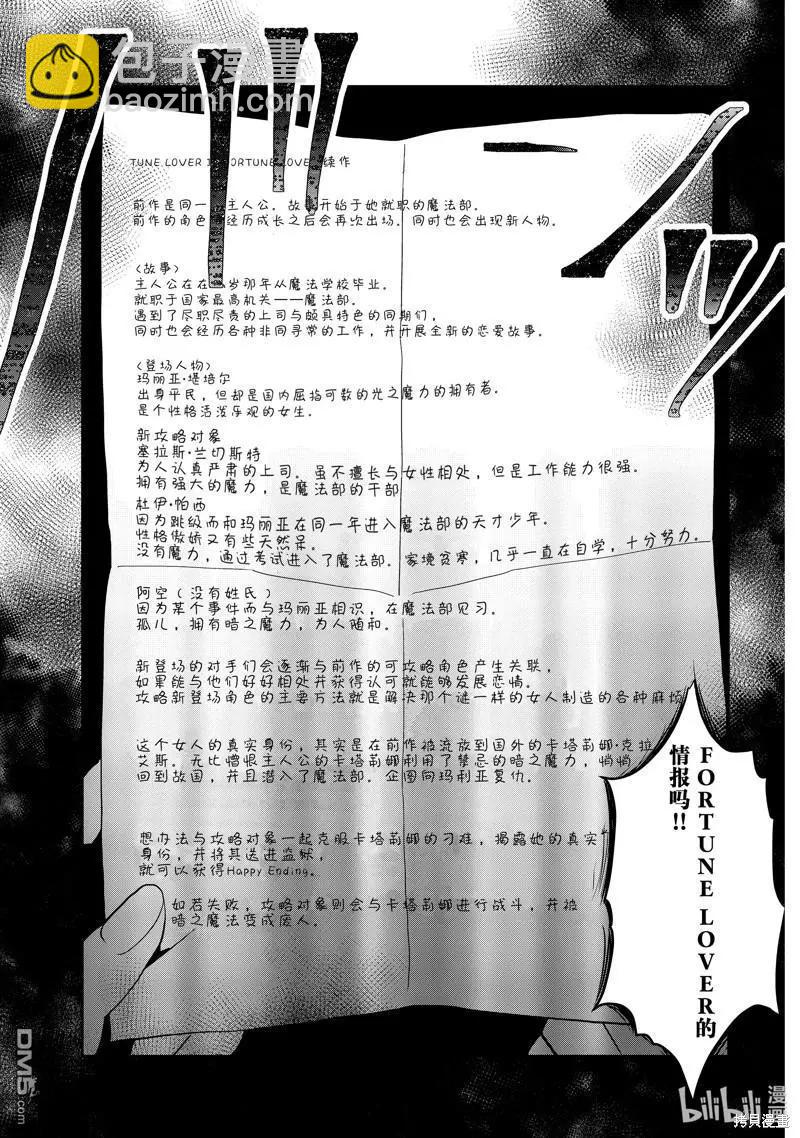 包子漫畫
baozimh.com
TUNE LOVER 续作
前作是同一 主人公。故事开始于她就职的魔法部。
前作的角色 经历成长之后会再次出场。同时也会出现新人物。
〈故事〉
主人公在在 岁那年从魔法学校毕业。
就职于国家最高机关——魔法部。
遇到了尽职尽责的上司与颇具特色的同期们，
同时也会经历各种非同寻常的工作，并开展全新的恋爱故事。
〈登场人物〉
玛丽亚·堤培尔
出身平民，但却是国内屈指可数的光之魔力的拥有者。
是个性格活泼乐观的女生。
新攻略对象
塞拉斯·兰切斯特
为人认真严肃的上司。虽不擅长与女性相处，但是工作能力很强。
拥有强大的魔力，是魔法部的干部
杜伊·帕西
因为跳级而和玛丽亚在同一年进入魔法部的天才少年。
性格傲娇又有些天然呆。
没有魔力，通过考试进入了魔法部。家境贫寒，几乎一直在自学，十分努力。
阿空（没有姓氏）
因为某个事件而与玛丽亚相识，在魔法部见习。
孤儿，拥有暗之魔力，为人随和。
新登场的对手们会逐渐与前作的可攻略角色产生关联，
如果能与他们好好相处并获得认可就能够发展恋情。
攻略新登场角色的主要方法就是解决那个谜一样的女人制造的各种麻烦
这个女人的真实身份，其实是在前作被流放到国外的卡塔莉娜·克拉
艾斯。无比憎恨主人公的卡塔莉娜利用了禁忌的暗之魔力，悄悄
回到故国，并且潜入了魔法部。企图向玛利亚复仇。
想办法与攻略对象一起克服卡塔莉娜的刁难，揭露她的真实
身份，并将其送进监狱，
就可以获得Happy Ending。
如若失败，攻略对象则会与卡塔莉娜进行战斗，并被
暗之魔法变成废人。
FORTUNE LOVER的
情报吗!!
DM5
.com
bilibili
漫画
拷貝漫畫